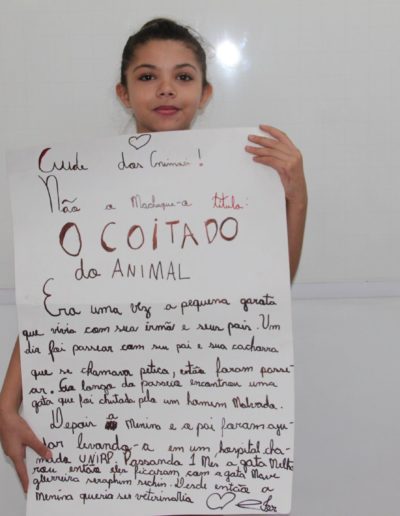 Cuide dos Animais!
Não a Machuque-a título:
O COITADO
do ANIMAL
Era uma vez a pequena garota
que vivia com sua irmã e seus pais. Um
dia foi passear com seu pai e sua cachorra
que se chamava petica, então foram passe-
ar. Ao longo do passeio encontrou uma
gata que foi chutada pela um homem Malvado.
Depois a Menina e o pai foram aju-
dar levando-a em um hospital cha-
mado UNIRP. Passando 1 Mês a gata Melho
rou então eles ficaram com a gata
guerreira seraphim Desde então a
Menina queria ser veterinária